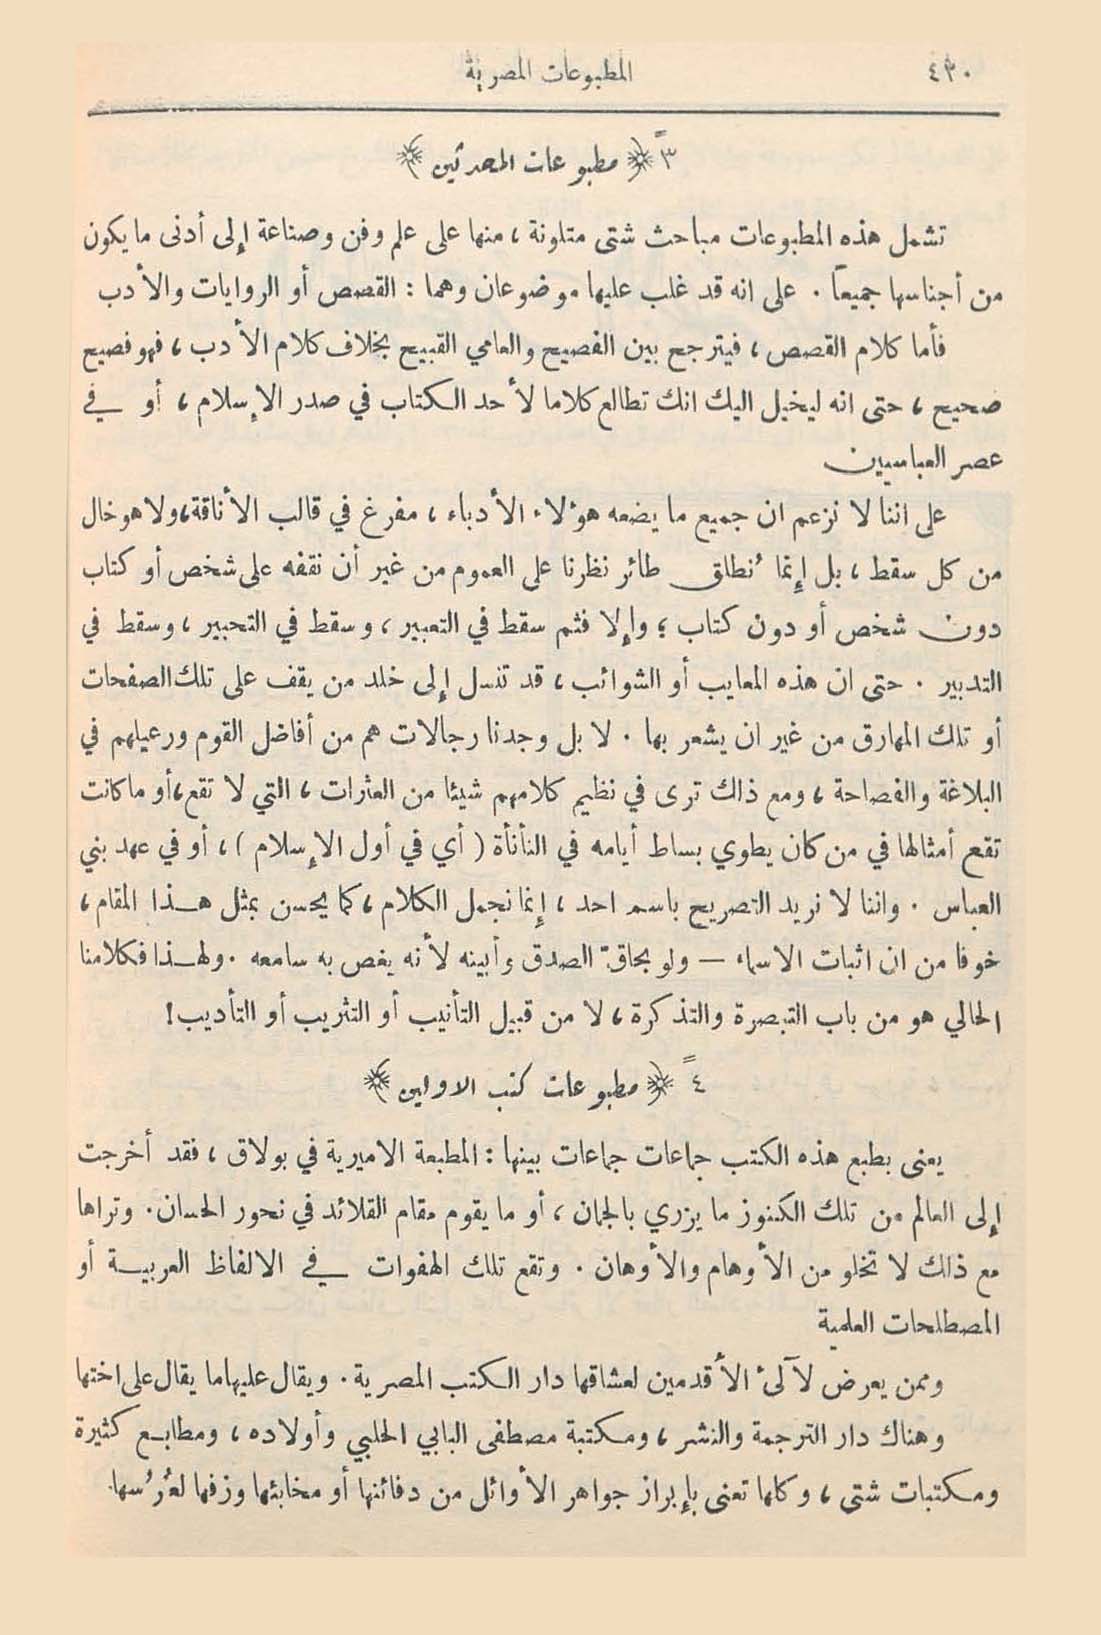 ٤٣٠ المطبوعات المصرية
٣ً ﴿ مطبوعات المحدثين ﴾
تشمل هذه المطبوعات مباحث شتى متلونة، منها على علم وفن وصناعة إلى أدنى ما يكون
من أجناسها جميعاً . على انه قد غلب عليها موضوعان وهما : القصص أو الروايات والأدب
فأما كلام القصص، فيترجح بين الفصيح والعامي القبيح بخلاف كلام الأدب، فهو فصيح
صحيح، حتى انه ليخيل اليك انك تطالع كلاما لأحد الكتاب في صدر الإسلام، أو في
عصر العباسيين
على اننا لا نزعم ان جميع ما يضعه هؤلاء الأدباء، مفرغ في قالب الأناقة، ولا هو خال
من كل سقط، بل إنما نُطلق طائر نظرنا على العموم من غير أن نقفه على شخص أو كتاب
دون شخص أو دون كتاب؛ وإلا فثم سقط في التعبير، وسقط في التحبير، وسقط في
التدبير . حتى ان هذه المعايب أو الشوائب، قد تنسل إلى خلد من يقف على تلك الصفحات
أو تلك المهارق من غير ان يشعر بها . لا بل وجدنا رجالات هم من أفاضل القوم ورعيلهم في
البلاغة والفصاحة، ومع ذاك ترى في نظيم كلامهم شيئا من العثرات، التي لا تقع، أو ما كانت
تقع أمثالها في من كان يطوي بساط أيامه في النأنأة ( أي في أول الإسلام )، أو في عهد بني
العباس . واننا لا نريد التصريح باسم احد، إنما نجمل الكلام، كما يحسن بمثل هـذا المقام،
خوفا من ان اثبات الاسماء — ولو بحاقّ الصدق وأبينه لأنه يغص به سامعه . ولهـذا فكلامنا
الحالي هو من باب التبصرة والتذكرة، لا من قبيل التأنيب أو التثريب أو التأديب!
٤ً ﴿ مطبوعات كتب الاولين ﴾
يعنى بطبع هذه الكتب جماعات جماعات بينها : المطبعة الاميرية في بولاق، فقد أخرجت
إلى العالم من تلك الكنوز ما يزري بالجمان، أو ما يقوم مقام القلائد في نحور الحسان. وتراها
مع ذلك لا تخلو من الأوهام والأوهان . وتقع تلك الهفوات في الالفاظ العربيـة أو
المصطلحات العلمية
وممن يعرض لآلئ الأقدمين لعشاقها دار الكتب المصرية. ويقال عليها ما يقال على اختها
وهناك دار الترجمة والنشر، ومكتبة مصطفى البابي الحلبي وأولاده، ومطابـع كثيرة
ومكتبات شتى، وكلها تعنى بإبراز جواهر الأوائل من دفائنها أو مخابئها وزفها لعُرُسها.